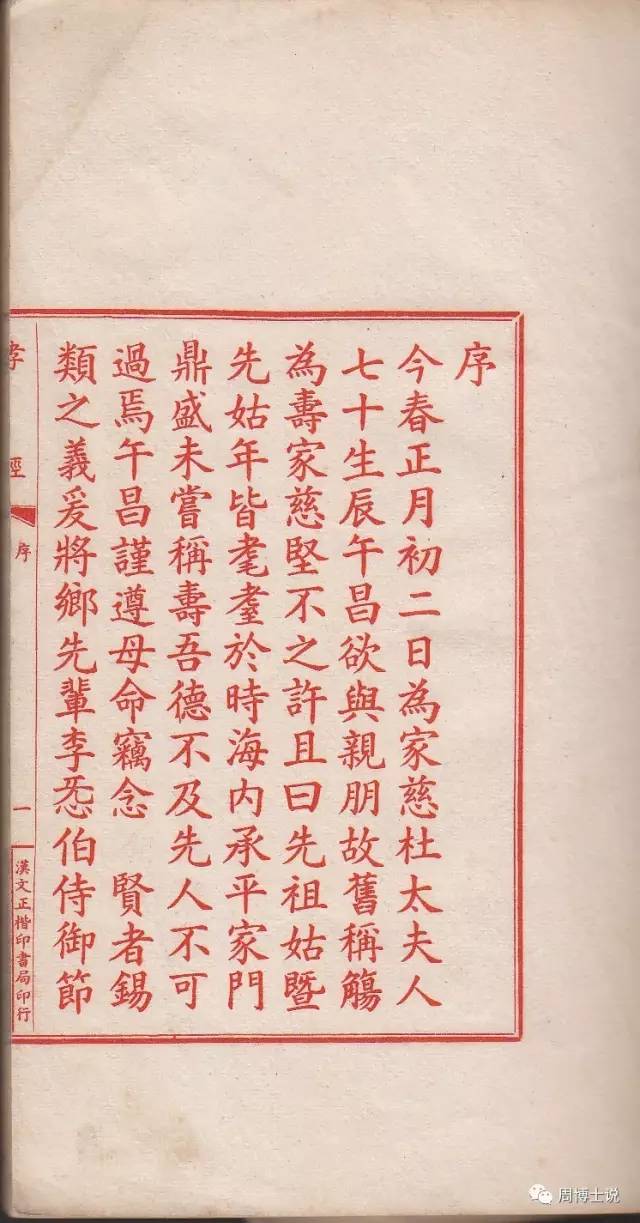 序
今春正月初二日為家慈杜太夫人
七十生辰午昌欲與親朋故舊稱觴
為壽家慈堅不之許且曰先祖姑暨
先姑年皆耄耋於時海內承平家門
鼎盛未嘗稱壽吾德不及先人不可
過焉午昌謹遵母命竊念　賢者錫
類之義爰將鄉先輩李㤅伯侍御節
孝經
序
一
漢文正楷印書局印行
周博士说